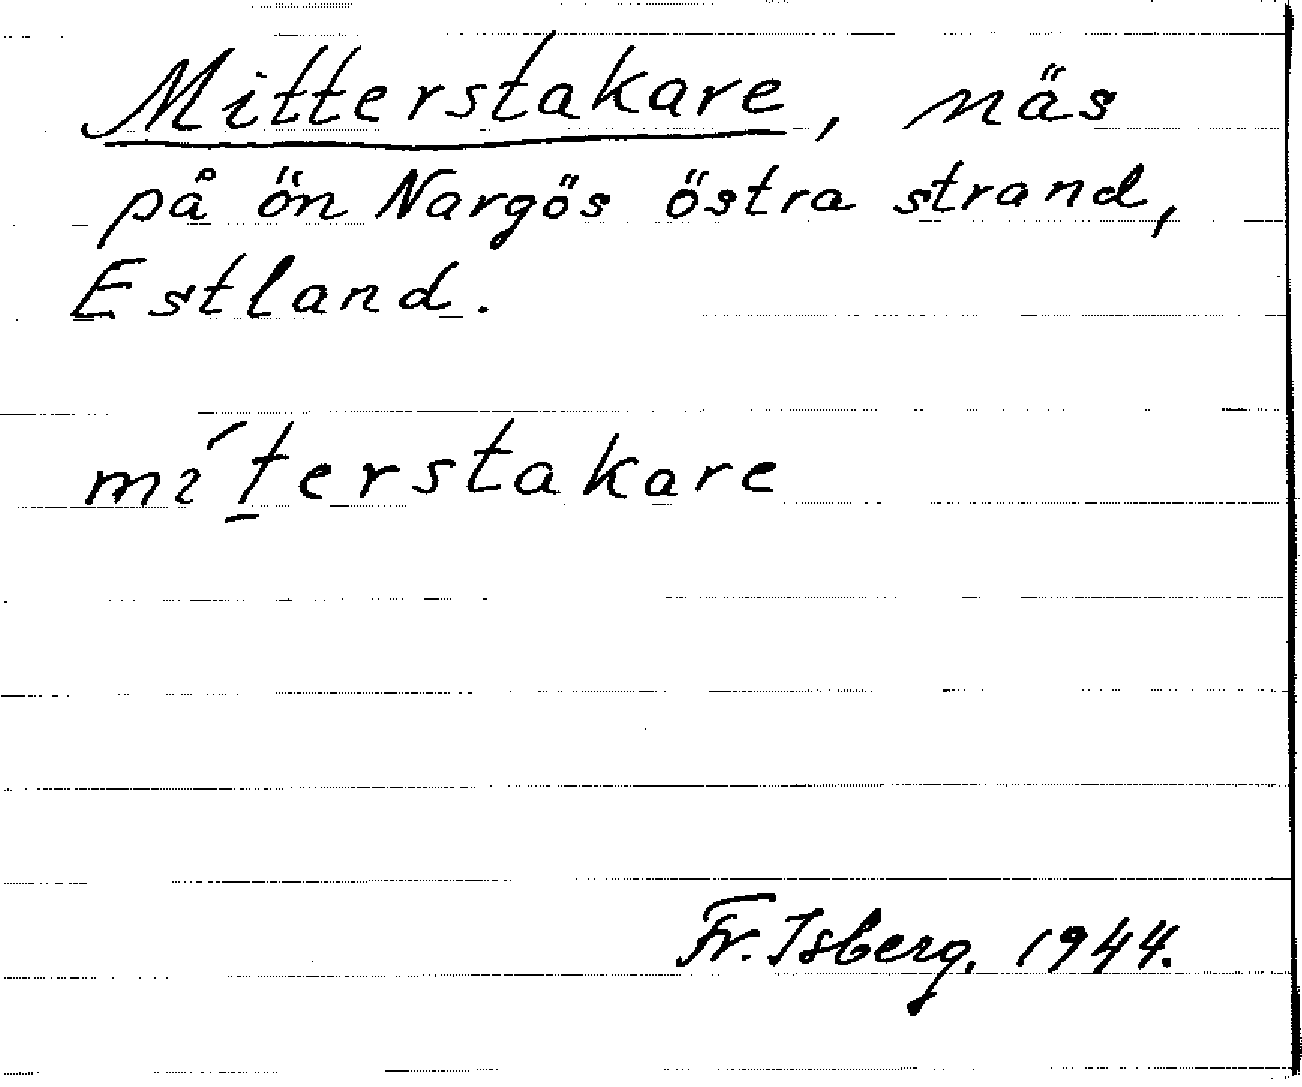 Mitterstakare, näs
på ön Nargös östra strand,
Estland.
mí̱terstakare
Fr. Isberg, 1944.